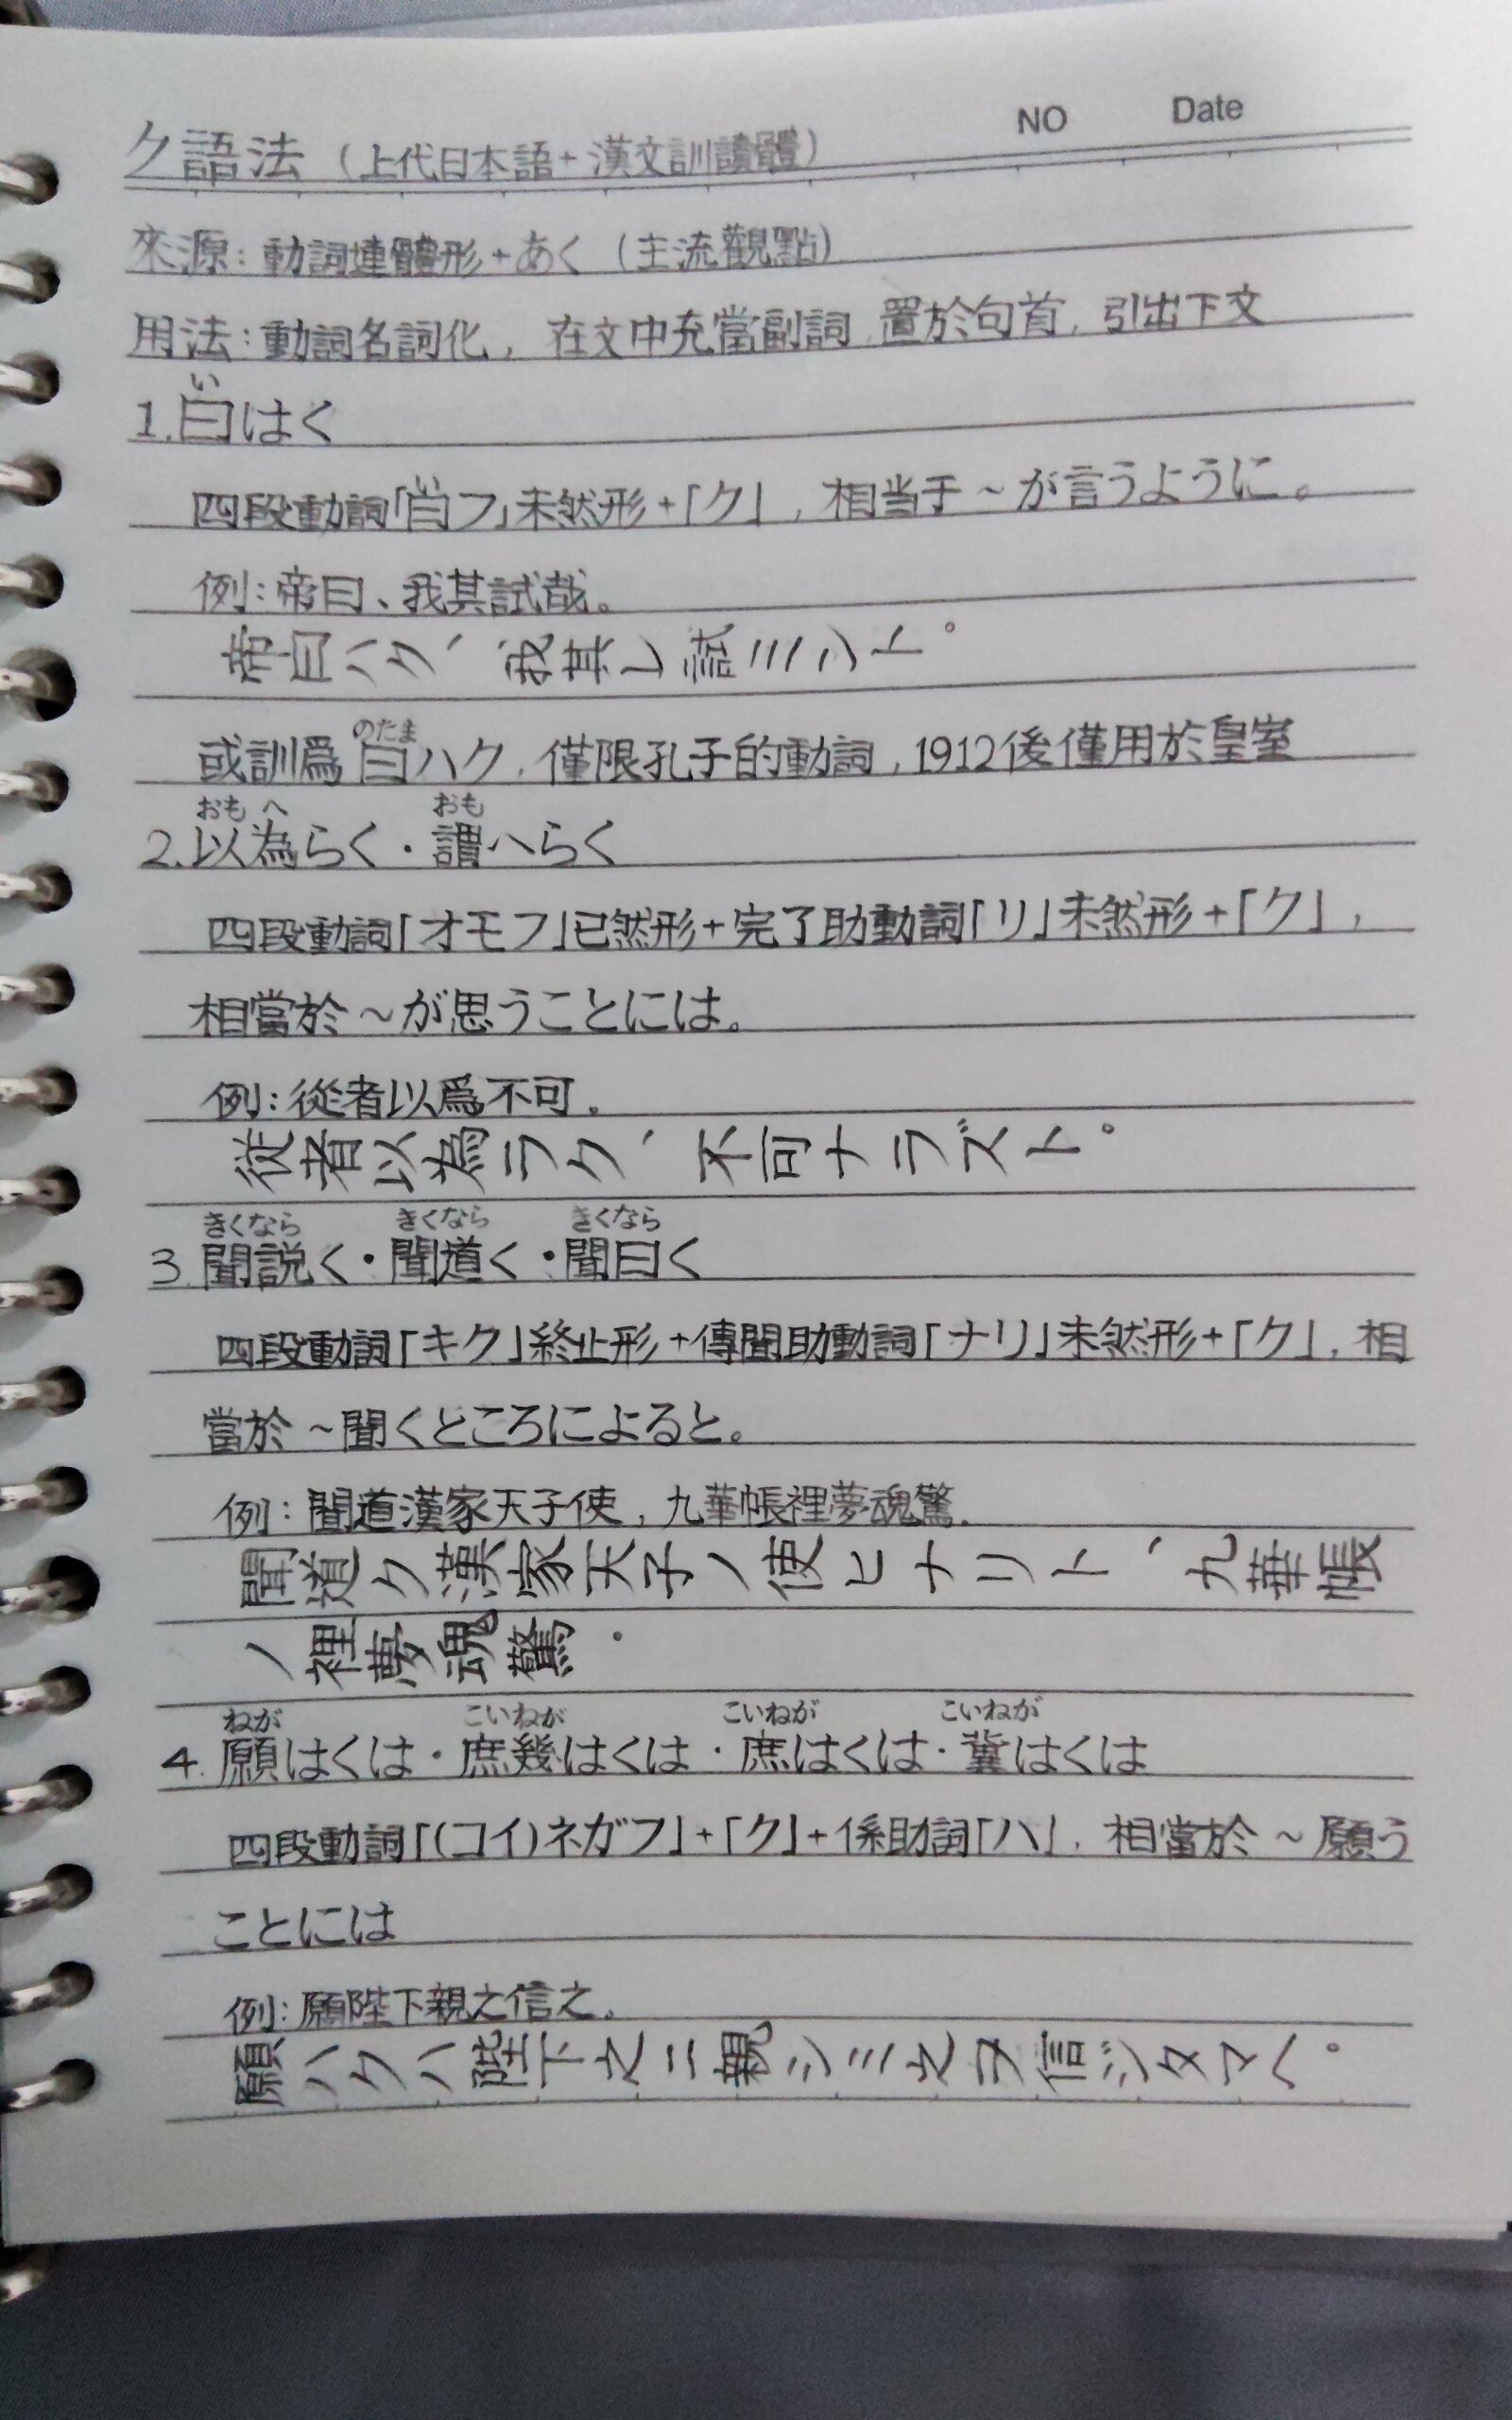 NO Date
ク語法（上代日本語+漢文訓讀體）
來源：動詞連體形+あく（主流觀點）
用法：動詞名詞化，在文中充當副詞，置於句首，引出下文
い
1.曰はく
四段動詞「曰フ」未然形+「ク」，相当于～が言うように。
例：帝曰、我其試哉。
帝曰ハク、我其レ試ミント。
のたま
或訓爲曰ハク，僅限孔子的動詞，1912後僅用於皇室
おも へ おも
2.以為らく・謂へらく
四段動詞「オモフ」已然形+完了助動詞「リ」未然形+「ク」，
相當於～が思うことには。
例：從者以爲不可。
従者以為ラク、不可ナラズト。
きくなら きくなら きくなら
3.聞説く・聞道く・聞曰く
四段動詞「キク」終止形+傳聞助動詞「ナリ」未然形+「ク」，相
當於～聞くところによると。
例：聞道漢家天子使，九華帳裡夢魂驚。
聞道ク漢家天子ノ使ヒナリト、九華帳
ノ裡夢魂驚。
ねが こいねが こいねが こいねが
4.願はくは・庶幾はくは・庶はくは・冀はくは
四段動詞「(コイ)ネガフ」+「ク」+係助詞「ハ」，相當於～願う
ことには
例：願陛下親之信之。
願ハクハ陛下之ニ親シミ之ヲ信ジタマヘ。